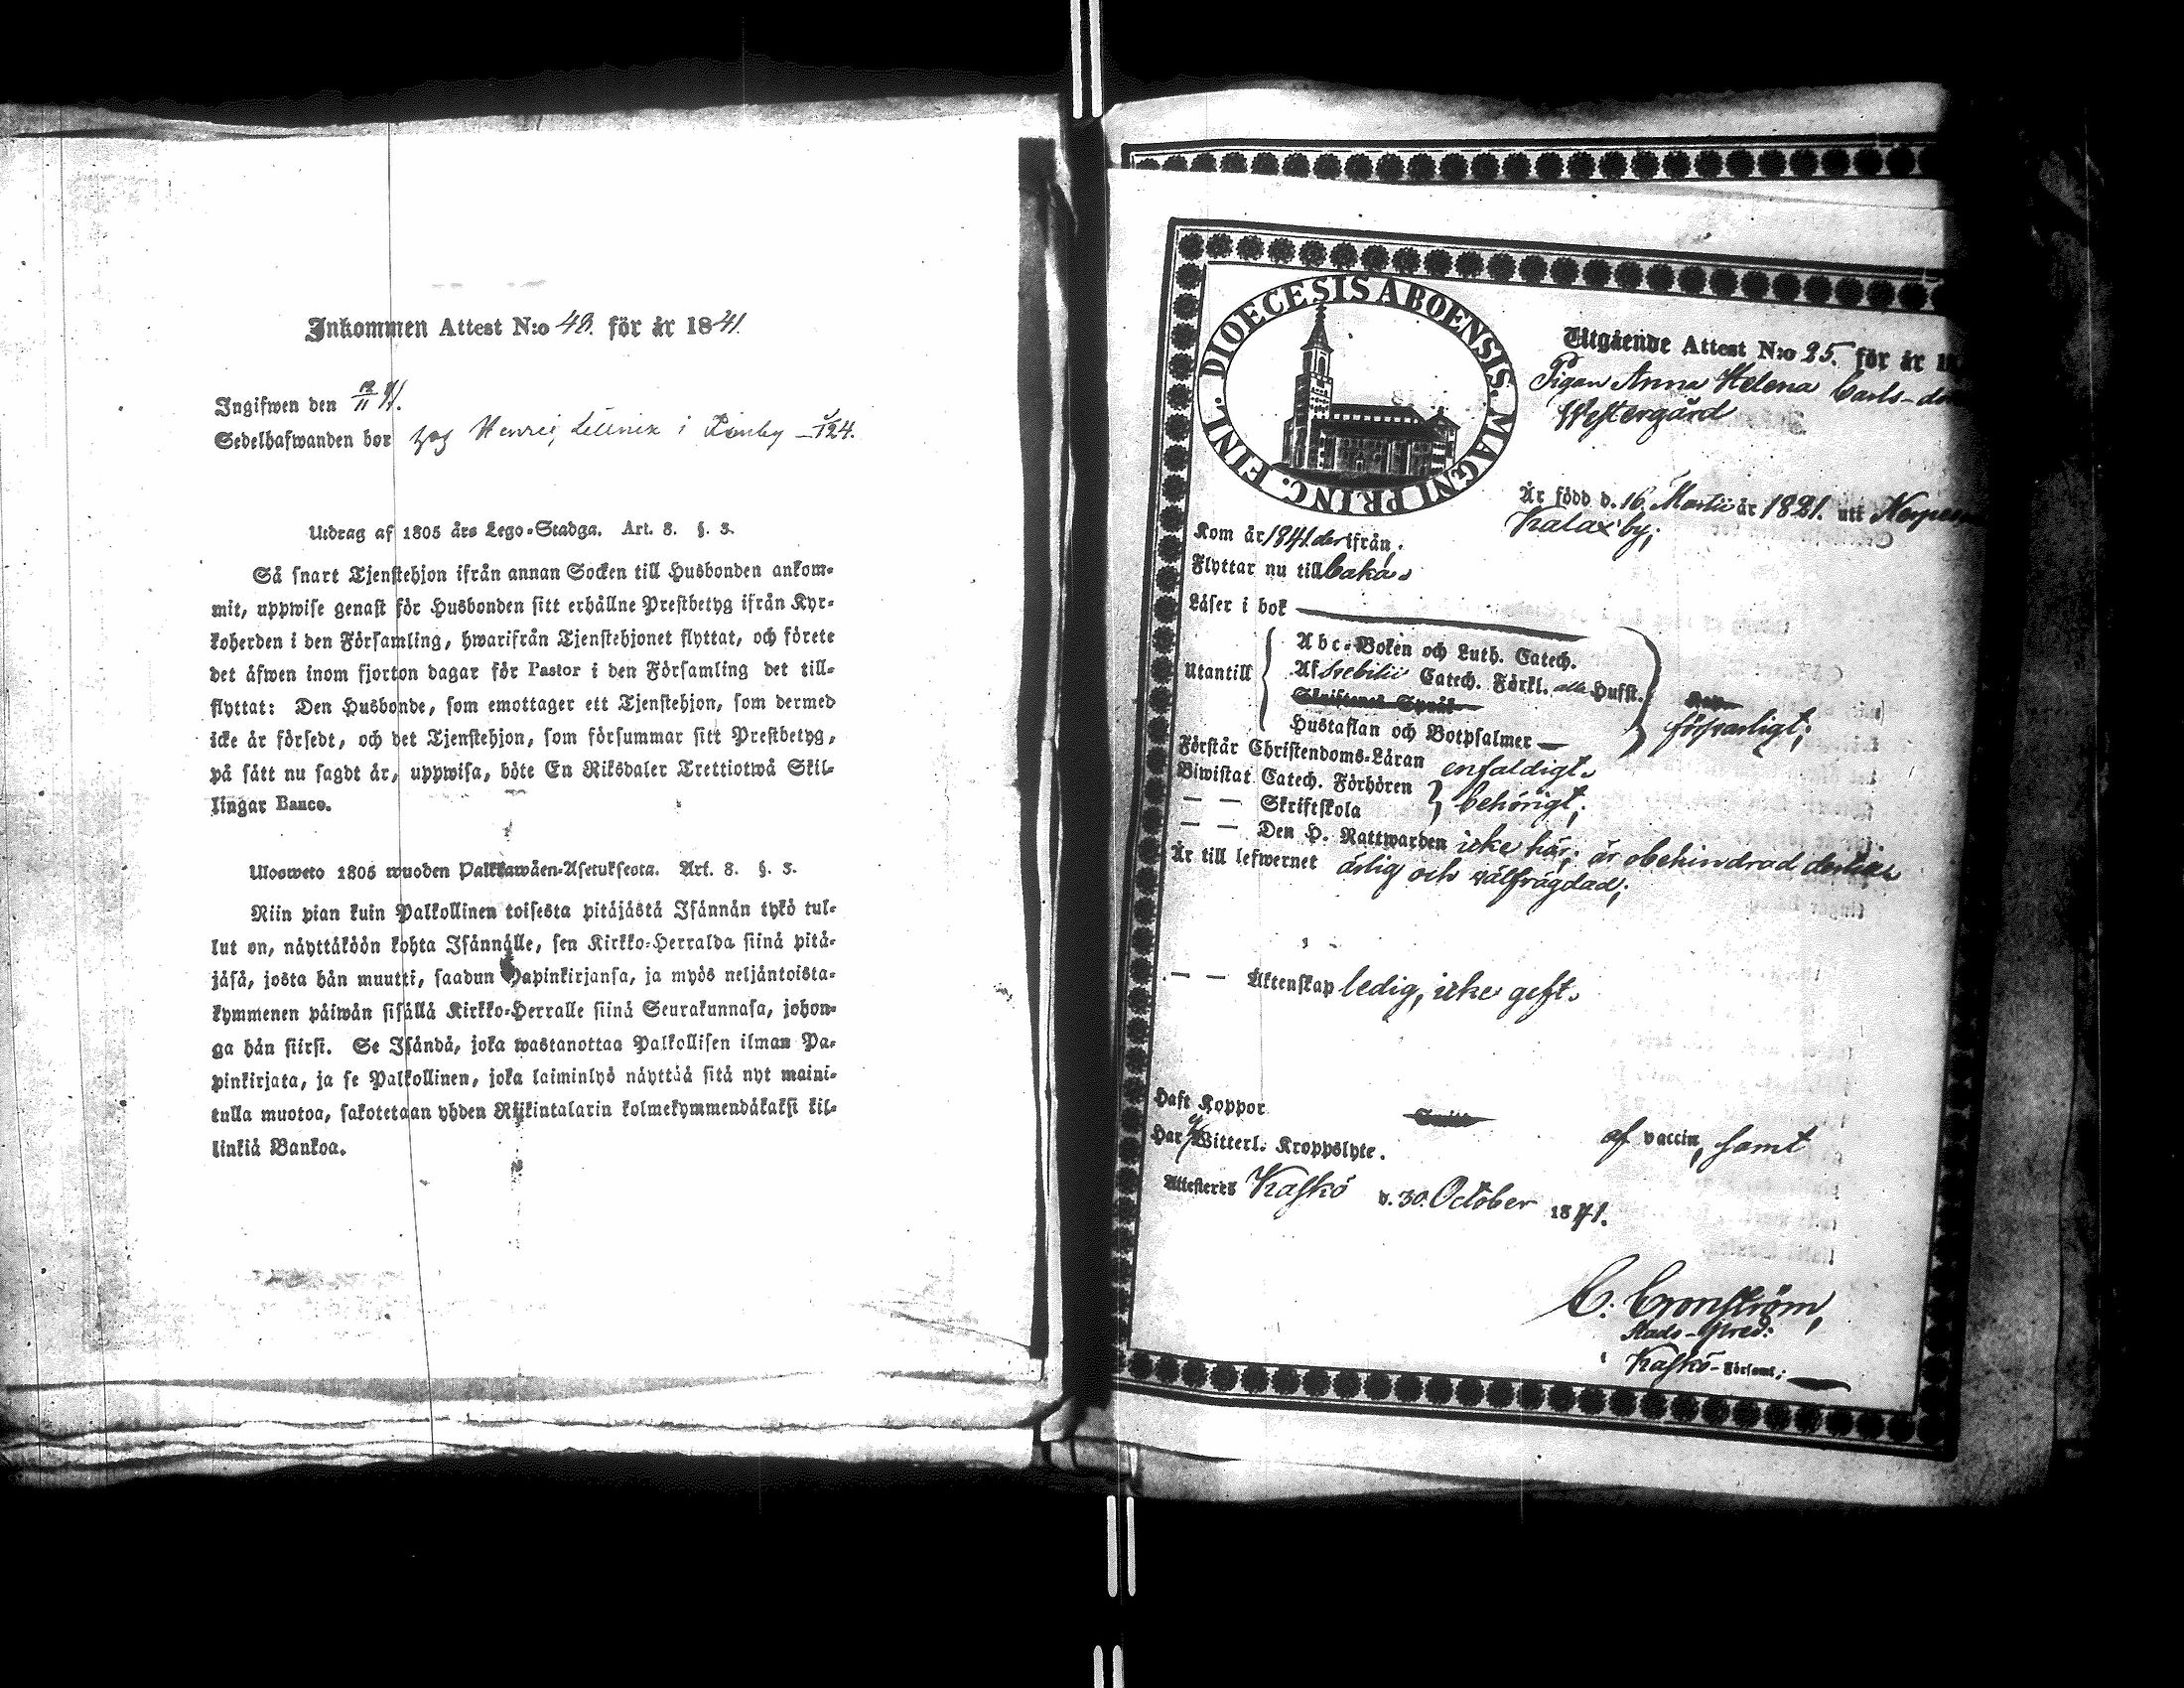 Inkommen Attest N:o 48. för år 1841.
Ingifwen den 12/11 41.
Sedelhafwanden bor hos Henric i
Utdrag af 1805 års Lego-Stadga. Art. 8. §. 3.
Så snart Tjenstehjon ifrån annan Socken till Husbonden ankom-
mit, uppwise genast för Husbonden sitt erhållne Prestbetyg ifrån Kyr-
koherden i den Församling, hwarifrån Tjenstehjonet flyttat, och förete
det äfwen inom fjorton dagar för Pastor i den Församling det till-
flyttat: Den Husbonde, som emottager ett Tjenstehjon, som dermed
icke är försedt, och det Tjenstehjon, som försummar sitt Prestbetyg,
på sätt nu sagdt är, uppwisa, böte En Riksdaler Trettiotwå Skil-
lingar Banco.
Ulosweto 1805 wuoden Palkkawäen-Asetuksesta. Art. 8. §. 3.
Niin pian kuin Palkollinen toisesta pitäjästä Isännän tykö tul-
lut on, näyttäköön kohta Isännälle, sen Kirkko-Herralda siinä pitä-
jäsä, josta hän muutti, saadun Papinkirjansa, ja myös neljäntoista-
kymmenen päiwän sisällä Kirkko-Herralle siinä Seurakunnasa, johon-
ga hän siirsi. Se Isändä, joka wastanottaa Palkollisen ilman Pa-
pinkirjata, ja se Palkollinen, joka laiminlyö näyttää sitä nyt maini-
tulla muotoa, sakotetaan yhden Riikintalarin kolmekymmendäkaksi kil-
linkiä Bankoa.
DIOECESIS ABOENSIS. MAGNI PRINC. FINL.
Utgående Attest N:o 25. för år 1
Pigan Anna Helena Carls-
Westergård
Är född d. 16. Martii år 1821. uti
Kalax by;
Kom år 1841 der ifrån;
Flyttar nu tillbaka.
Läser i bok
Abc-Boken och Luth. Catech.
Utantill Af Svebilii Catech. Förkl. alla Hufst.
Skriftenes Språk
Hustaflan och Botpsalmer försvarligt;
Förstår Christendoms-Läran enfaldigt.
Biwistat Catech. Förhören
— — Skriftskola behörigt;
— — Den H. Nattwarden icke här; är obehindrad
Är till lefwernet ärlig och välfrägdad;
— — Äktenskap ledig, icke gift.
Haft Koppor af vaccin, samt
Har ej Witterl. Kroppslyte.
Attesteres Kaskö d. 30. October 1841.
C. Cronström,
Stads-Pred:
i Kaskö-Församl: